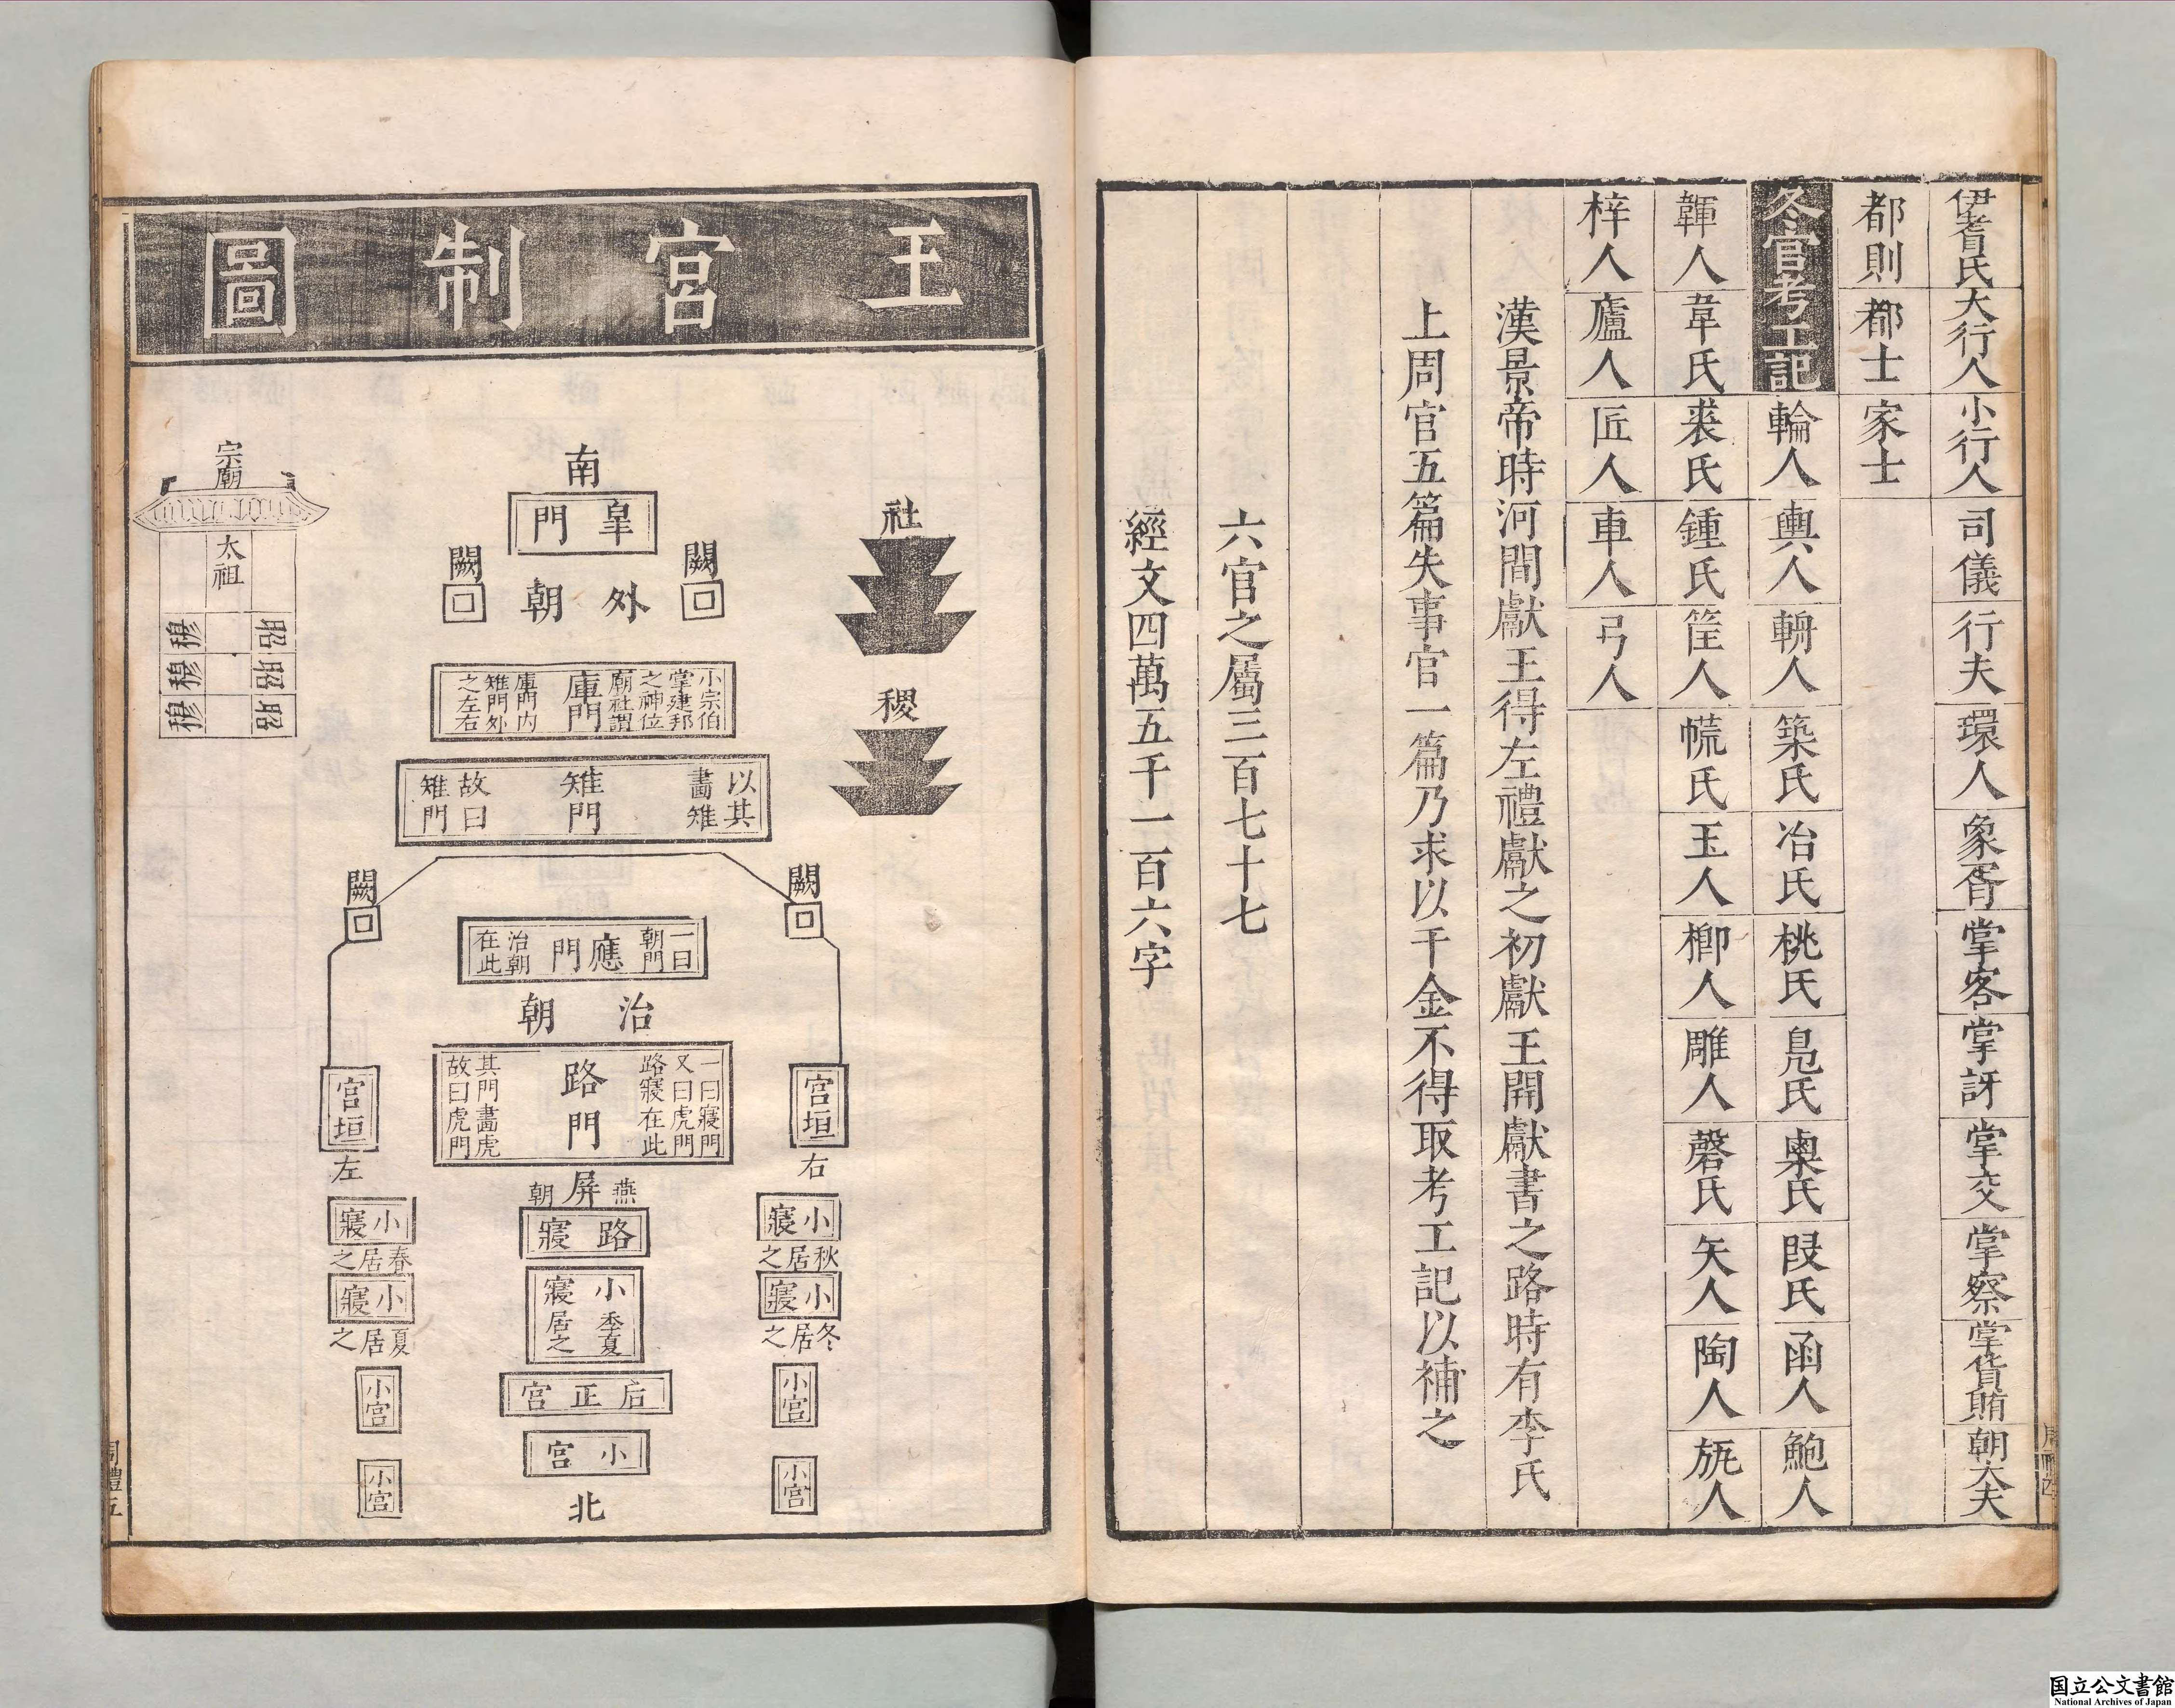 伊耆氏 大行人 小行人 司儀 行夫 環人 象胥 掌客 掌訝 掌交 掌察 掌貨賄 朝大夫
都則 都士 家士
冬官考工記 輪人 輿人 輈人 築氏 冶氏 桃氏 鳧氏 㮚氏 段氏 函人 鮑人
韗人 韋氏 裘氏 鍾氏 筐人 㡛氏 玉人 楖人 雕人 磬氏 矢人 陶人 旊人
梓人 廬人 匠人 車人 弓人
漢景帝時河間獻王得左禮獻之初獻王開獻書之路時有李氏
上周官五篇失事官一篇乃求以千金不得取考工記以補之
六官之屬三百七十七
經文四萬五千一百六字
王宮制圖
南
皐門
社
稷
宗廟
太祖
昭 昭 昭
穆 穆 穆
闕
闕
外朝
小宗伯
掌建邦
之神位
廟社謂
庫門
庫門內
雉門外
之左右
以其
畫雉
雉門
故曰
雉門
闕
闕
一曰
朝門
應門
治朝
在此
治朝
一曰寢門
又曰虎門
路寢在此
路門
其門畫虎
故曰虎門
宮垣
右
宮垣
左
燕屏朝
路寢
小寢
季夏
居之
后正宮
小宮
北
小寢
秋居之
小寢
冬居之
小宮
小宮
小寢
春居之
小寢
夏居之
小宮
小宮
周禮五
国立公文書館
National Archives of Japan